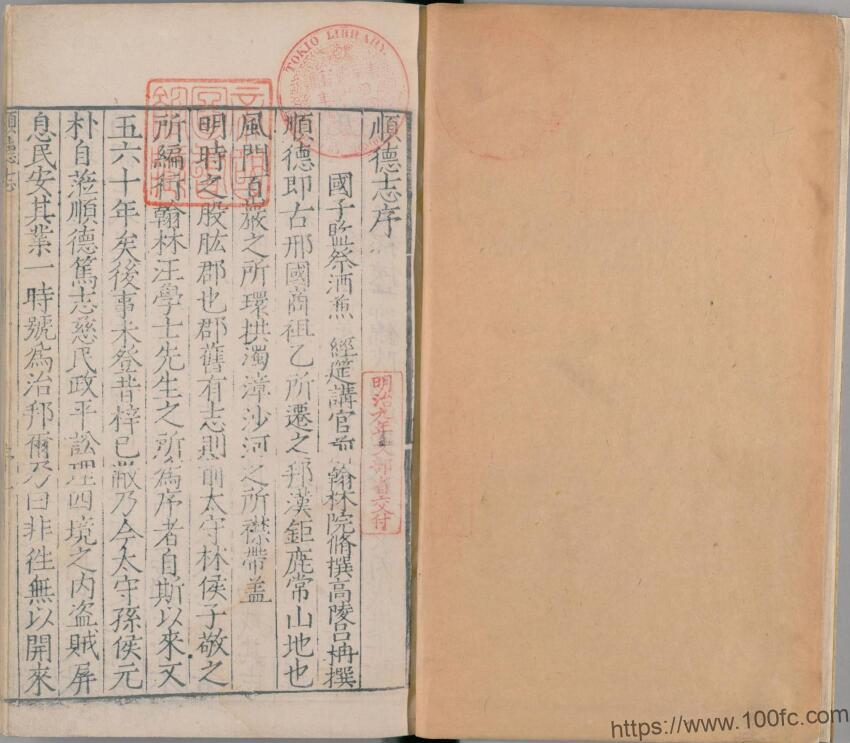 順德志序
國子監祭酒兼 經筵講官前翰林院脩撰高陵呂柟撰
順德即古邢國商祖乙所遷之邦漢鉅鹿常山地也
風門百巖之所環拱濁漳沙河之所襟帶盖
明時之股肱郡也郡舊有志則前太守林侯子敬之
所編行翰林汪學士先生之所為序者自斯以來文
五六十年矣後事未登昔梓已敝乃今太守孫侯元
朴自蒞順德篤志慈民政平訟理四境之内盗賊屏
息民安其業一時號為治邦爾乃曰非徃無以開來
順德志
序
TOKIO LIBRARY
明治九年文部省交付
https://www.100fc.com